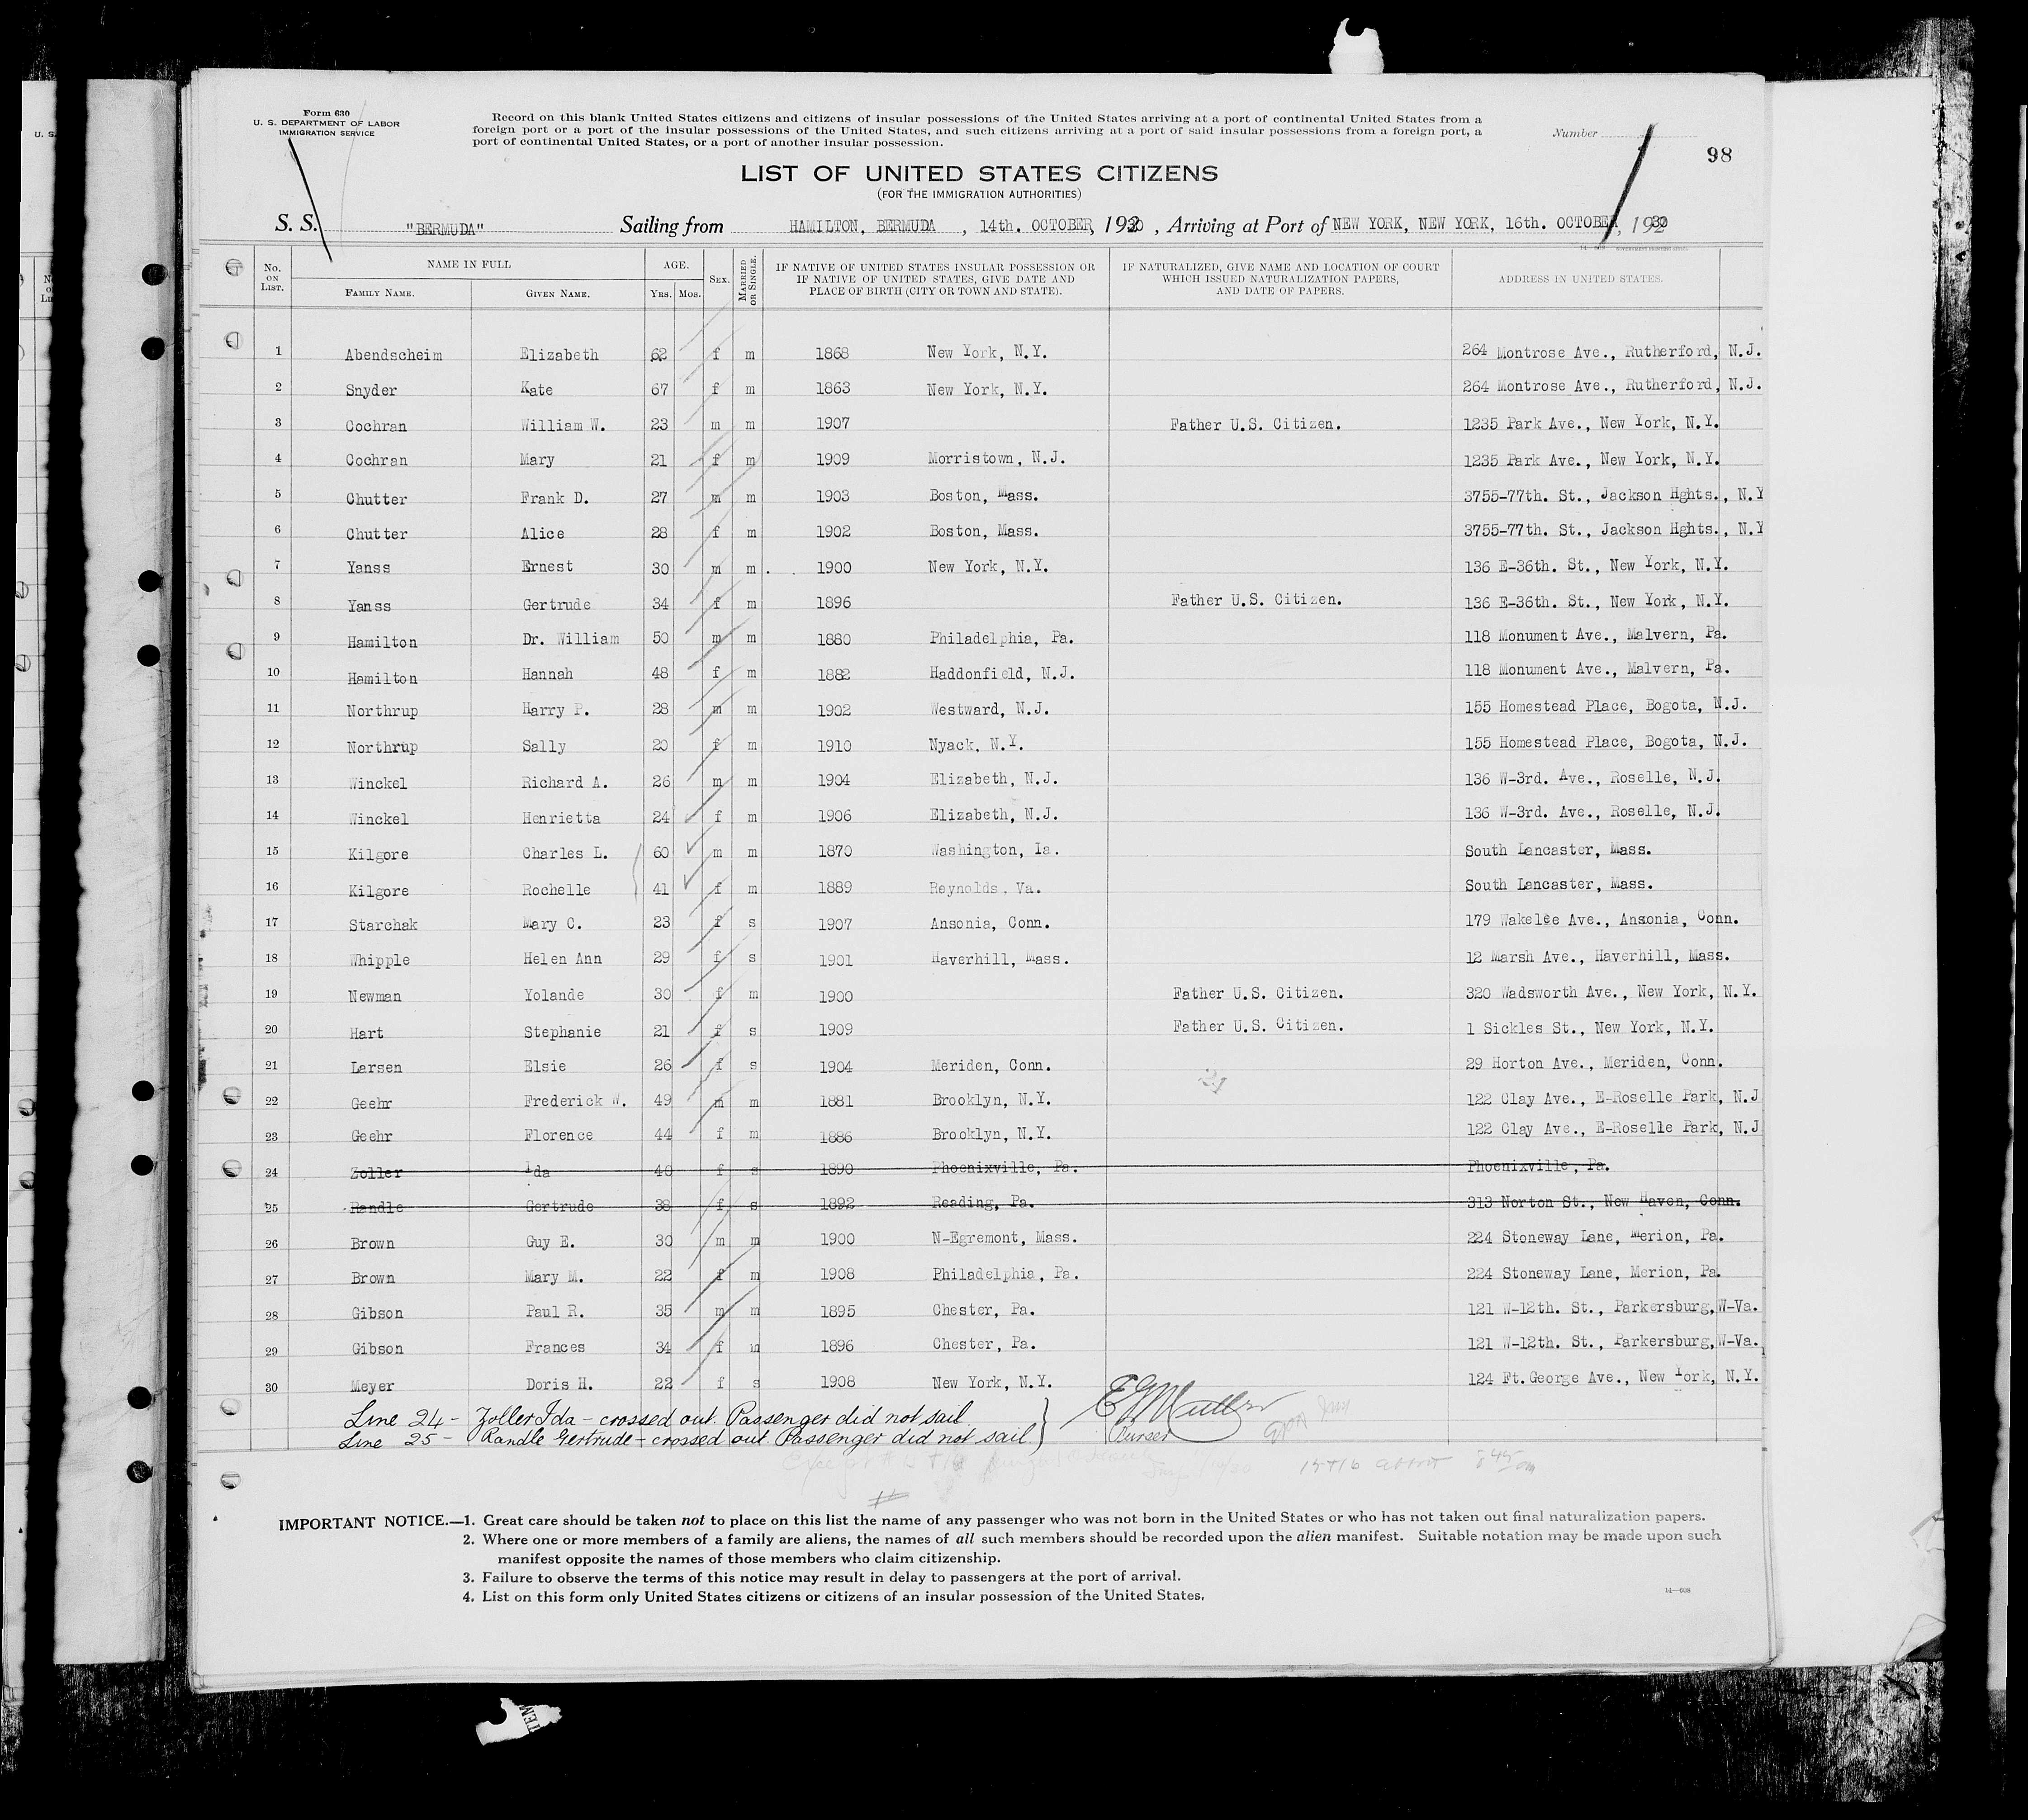 Form 630
U. S. DEPARTMENT OF LABOR
IMMIGRATION SERVICE
Record on this blank United States citizens and citizens of insular possessions of the United States arriving at a port of continental United States from a
foreign port or a port of the insular possessions of the United States, and such citizens arriving at a port of said insular possessions from a foreign port, a
port of continental United States, or a port of another insular possession.
Number
98
LIST OF UNITED STATES CITIZENS
(FOR THE IMMIGRATION AUTHORITIES)
S. S. "BERMUDA" Sailing from HAMILTON, BERMUDA , 14th. OCTOBER, 1930 , Arriving at Port of NEW YORK, NEW YORK, 16th. OCTOBER, 1930
No. ON LIST. NAME IN FULL FAMILY NAME. GIVEN NAME. AGE. YRS. MOS. SEX. MARRIED OR SINGLE. IF NATIVE OF UNITED STATES INSULAR POSSESSION OR IF NATIVE OF UNITED STATES, GIVE DATE AND PLACE OF BIRTH (CITY OR TOWN AND STATE). IF NATURALIZED, GIVE NAME AND LOCATION OF COURT WHICH ISSUED NATURALIZATION PAPERS, AND DATE OF PAPERS. ADDRESS IN UNITED STATES.
1 Abendscheim Elizabeth 62 f m 1868 New York, N.Y. 264 Montrose Ave., Rutherford, N.J.
2 Snyder Kate 67 f m 1863 New York, N.Y. 264 Montrose Ave., Rutherford, N.J.
3 Cochran William W. 23 m m 1907 Father U.S. Citizen. 1235 Park Ave., New York, N.Y.
4 Cochran Mary 21 f m 1909 Morristown, N.J. 1235 Park Ave., New York, N.Y.
5 Chutter Frank D. 27 m m 1903 Boston, Mass. 3755-77th. St., Jackson Hghts., N.Y
6 Chutter Alice 28 f m 1902 Boston, Mass. 3755-77th. St., Jackson Hghts., N.Y
7 Yanss Ernest 30 m m 1900 New York, N.Y. 136 E-36th. St., New York, N.Y.
8 Yanss Gertrude 34 f m 1896 Father U.S. Citizen. 136 E-36th. St., New York, N.Y.
9 Hamilton Dr. William 50 m m 1880 Philadelphia, Pa. 118 Monument Ave., Malvern, Pa.
10 Hamilton Hannah 48 f m 1882 Haddonfield, N.J. 118 Monument Ave., Malvern, Pa.
11 Northrup Harry P. 28 m m 1902 Westward, N.J. 155 Homestead Place, Bogota, N.J.
12 Northrup Sally 20 f m 1910 Nyack, N.Y. 155 Homestead Place, Bogota, N.J.
13 Winckel Richard A. 26 m m 1904 Elizabeth, N.J. 136 W-3rd. Ave., Roselle, N.J.
14 Winckel Henrietta 24 f m 1906 Elizabeth, N.J. 136 W-3rd. Ave., Roselle, N.J.
15 Kilgore Charles L. 60 m m 1870 Washington, Ia. South Lancaster, Mass.
16 Kilgore Rochelle 41 f m 1889 Reynolds, Va. South Lancaster, Mass.
17 Starchak Mary C. 23 f s 1907 Ansonia, Conn. 179 Wakelee Ave., Ansonia, Conn.
18 Whipple Helen Ann 29 f s 1901 Haverhill, Mass. 12 Marsh Ave., Haverhill, Mass.
19 Newman Yolande 30 f m 1900 Father U.S. Citizen. 320 Wadsworth Ave., New York, N.Y.
20 Hart Stephanie 21 f s 1909 Father U.S. Citizen. 1 Sickles St., New York, N.Y.
21 Larsen Elsie 26 f s 1904 Meriden, Conn. 29 Horton Ave., Meriden, Conn.
22 Geehr Frederick W. 49 m m 1881 Brooklyn, N.Y. 122 Clay Ave., E-Roselle Park, N.J
23 Geehr Florence 44 f m 1886 Brooklyn, N.Y. 122 Clay Ave., E-Roselle Park, N.J
24 Zoller Ida 40 f s 1890 Phoenixville, Pa. Phoenixville, Pa.
25 Randle Gertrude 38 f s 1892 Reading, Pa. 313 Norton St., New Haven, Conn.
26 Brown Guy E. 30 m m 1900 N-Egremont, Mass. 224 Stoneway Lane, Merion, Pa.
27 Brown Mary M. 22 f m 1908 Philadelphia, Pa. 224 Stoneway Lane, Merion, Pa.
28 Gibson Paul R. 35 m m 1895 Chester, Pa. 121 W-12th. St., Parkersburg, W-Va.
29 Gibson Frances 34 f m 1896 Chester, Pa. 121 W-12th. St., Parkersburg, W-Va.
30 Meyer Doris H. 22 f s 1908 New York, N.Y. 124 Ft.George Ave., New York, N.Y.
Line 24 - Zoller Ida - crossed out. Passenger did not sail
Line 25 - Randle Gertrude - crossed out Passenger did not sail
Purser
IMPORTANT NOTICE.—1. Great care should be taken not to place on this list the name of any passenger who was not born in the United States or who has not taken out final naturalization papers.
2. Where one or more members of a family are aliens, the names of all such members should be recorded upon the alien manifest. Suitable notation may be made upon such
manifest opposite the names of those members who claim citizenship.
3. Failure to observe the terms of this notice may result in delay to passengers at the port of arrival.
4. List on this form only United States citizens or citizens of an insular possession of the United States.
14—608